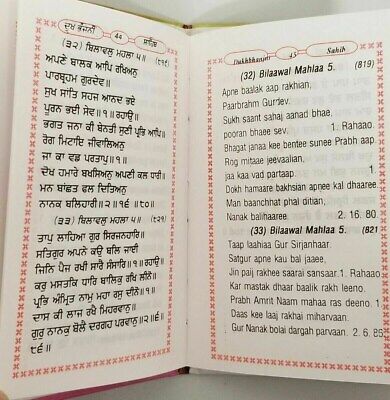 ਦੁਖ ਭੰਜਨੀ 44 ਸਾਹਿਬ
(੩੨) ਬਿਲਾਵਲੁ ਮਹਲਾ ੫॥ (੮੧੯)
ਅਪਣੇ ਬਾਲਕ ਆਪਿ ਰਖਿਅਨੁ
ਪਾਰਬ੍ਰਹਮ ਗੁਰਦੇਵ॥
ਸੁਖ ਸਾਂਤਿ ਸਹਜ ਆਨਦ ਭਏ
ਪੂਰਨ ਭਈ ਸੇਵ॥੧॥ ਰਹਾਉ॥
ਭਗਤ ਜਨਾ ਕੀ ਬੇਨਤੀ ਸੁਣੀ ਪ੍ਰਭਿ ਆਪਿ॥
ਰੋਗ ਮਿਟਾਇ ਜੀਵਾਲਿਅਨੁ
ਜਾ ਕਾ ਵਡ ਪਰਤਾਪੁ॥੧॥
ਦੋਖ ਹਮਾਰੇ ਬਖਸਿਅਨੁ ਅਪਣੀ ਕਲ ਧਾਰੀ॥
ਮਨ ਬਾਂਛਤ ਫਲ ਦਿਤਿਅਨੁ
ਨਾਨਕ ਬਲਿਹਾਰੀ॥੨॥੧੬॥੮੦॥
(੩੩) ਬਿਲਾਵਲੁ ਮਹਲਾ ੫॥ (੮੨੧)
ਤਾਪੁ ਲਾਹਿਆ ਗੁਰ ਸਿਰਜਨਹਾਰਿ॥
ਸਤਿਗੁਰ ਅਪਨੇ ਕਉ ਬਲਿ ਜਾਈ
ਜਿਨਿ ਪੈਜ ਰਖੀ ਸਾਰੈ ਸੰਸਾਰਿ॥੧॥ ਰਹਾਉ॥
ਕਰੁ ਮਸਤਕਿ ਧਾਰਿ ਬਾਲਿਕੁ ਰਖਿ ਲੀਨੋ॥
ਪ੍ਰਭਿ ਅੰਮ੍ਰਿਤ ਨਾਮੁ ਮਹਾ ਰਸੁ ਦੀਨੋ॥੧॥
ਦਾਸ ਕੀ ਲਾਜ ਰਖੈ ਮਿਹਰਵਾਨੁ॥
ਗੁਰੁ ਨਾਨਕੁ ਬੋਲੈ ਦਰਗਹ ਪਰਵਾਨੁ॥੨॥੬॥
੮੬॥
Dukhbhanjni 45 Sahib
(32) Bilaawal Mahlaa 5. (819)
Apne baalak aap rakhian,
Paarbrahm Gurdev.
Sukh saant sahaj aanad bhae,
pooran bhaee sev. 1. Rahaao.
Bhagat janaa kee bentee sunee Prabh aap.
Rog mitaae jeevaalian,
jaa kaa vad partaap. 1.
Dokh hamaare bakhsian apnee kal dhaaree.
Man baanchhat phal ditian,
Nanak balihaaree. 2. 16. 80.
(33) Bilaawal Mahlaa 5. (821
Taap laahiaa Gur Sirjanhaar.
Satgur apne kau bal jaaee,
Jin paij rakhee saarai sansaar.1. Rahaao.
Kar mastak dhaar baalik rakh leeno.
Prabh Amrit Naam mahaa ras deeno. 1.
Daas kee laaj rakhai miharvaan.
Gur Nanak bolai dargah parvaan. 2. 6. 86